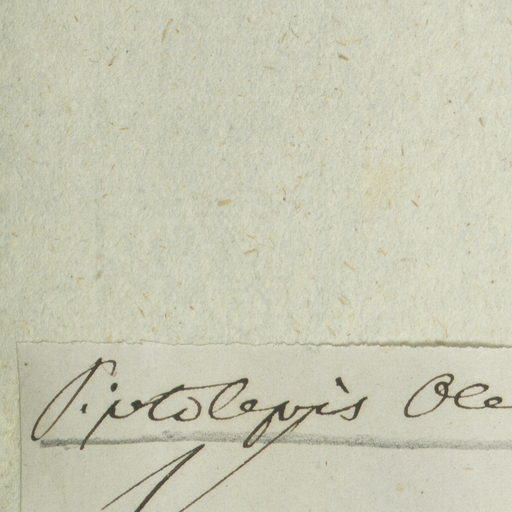 Piptolepis Ole